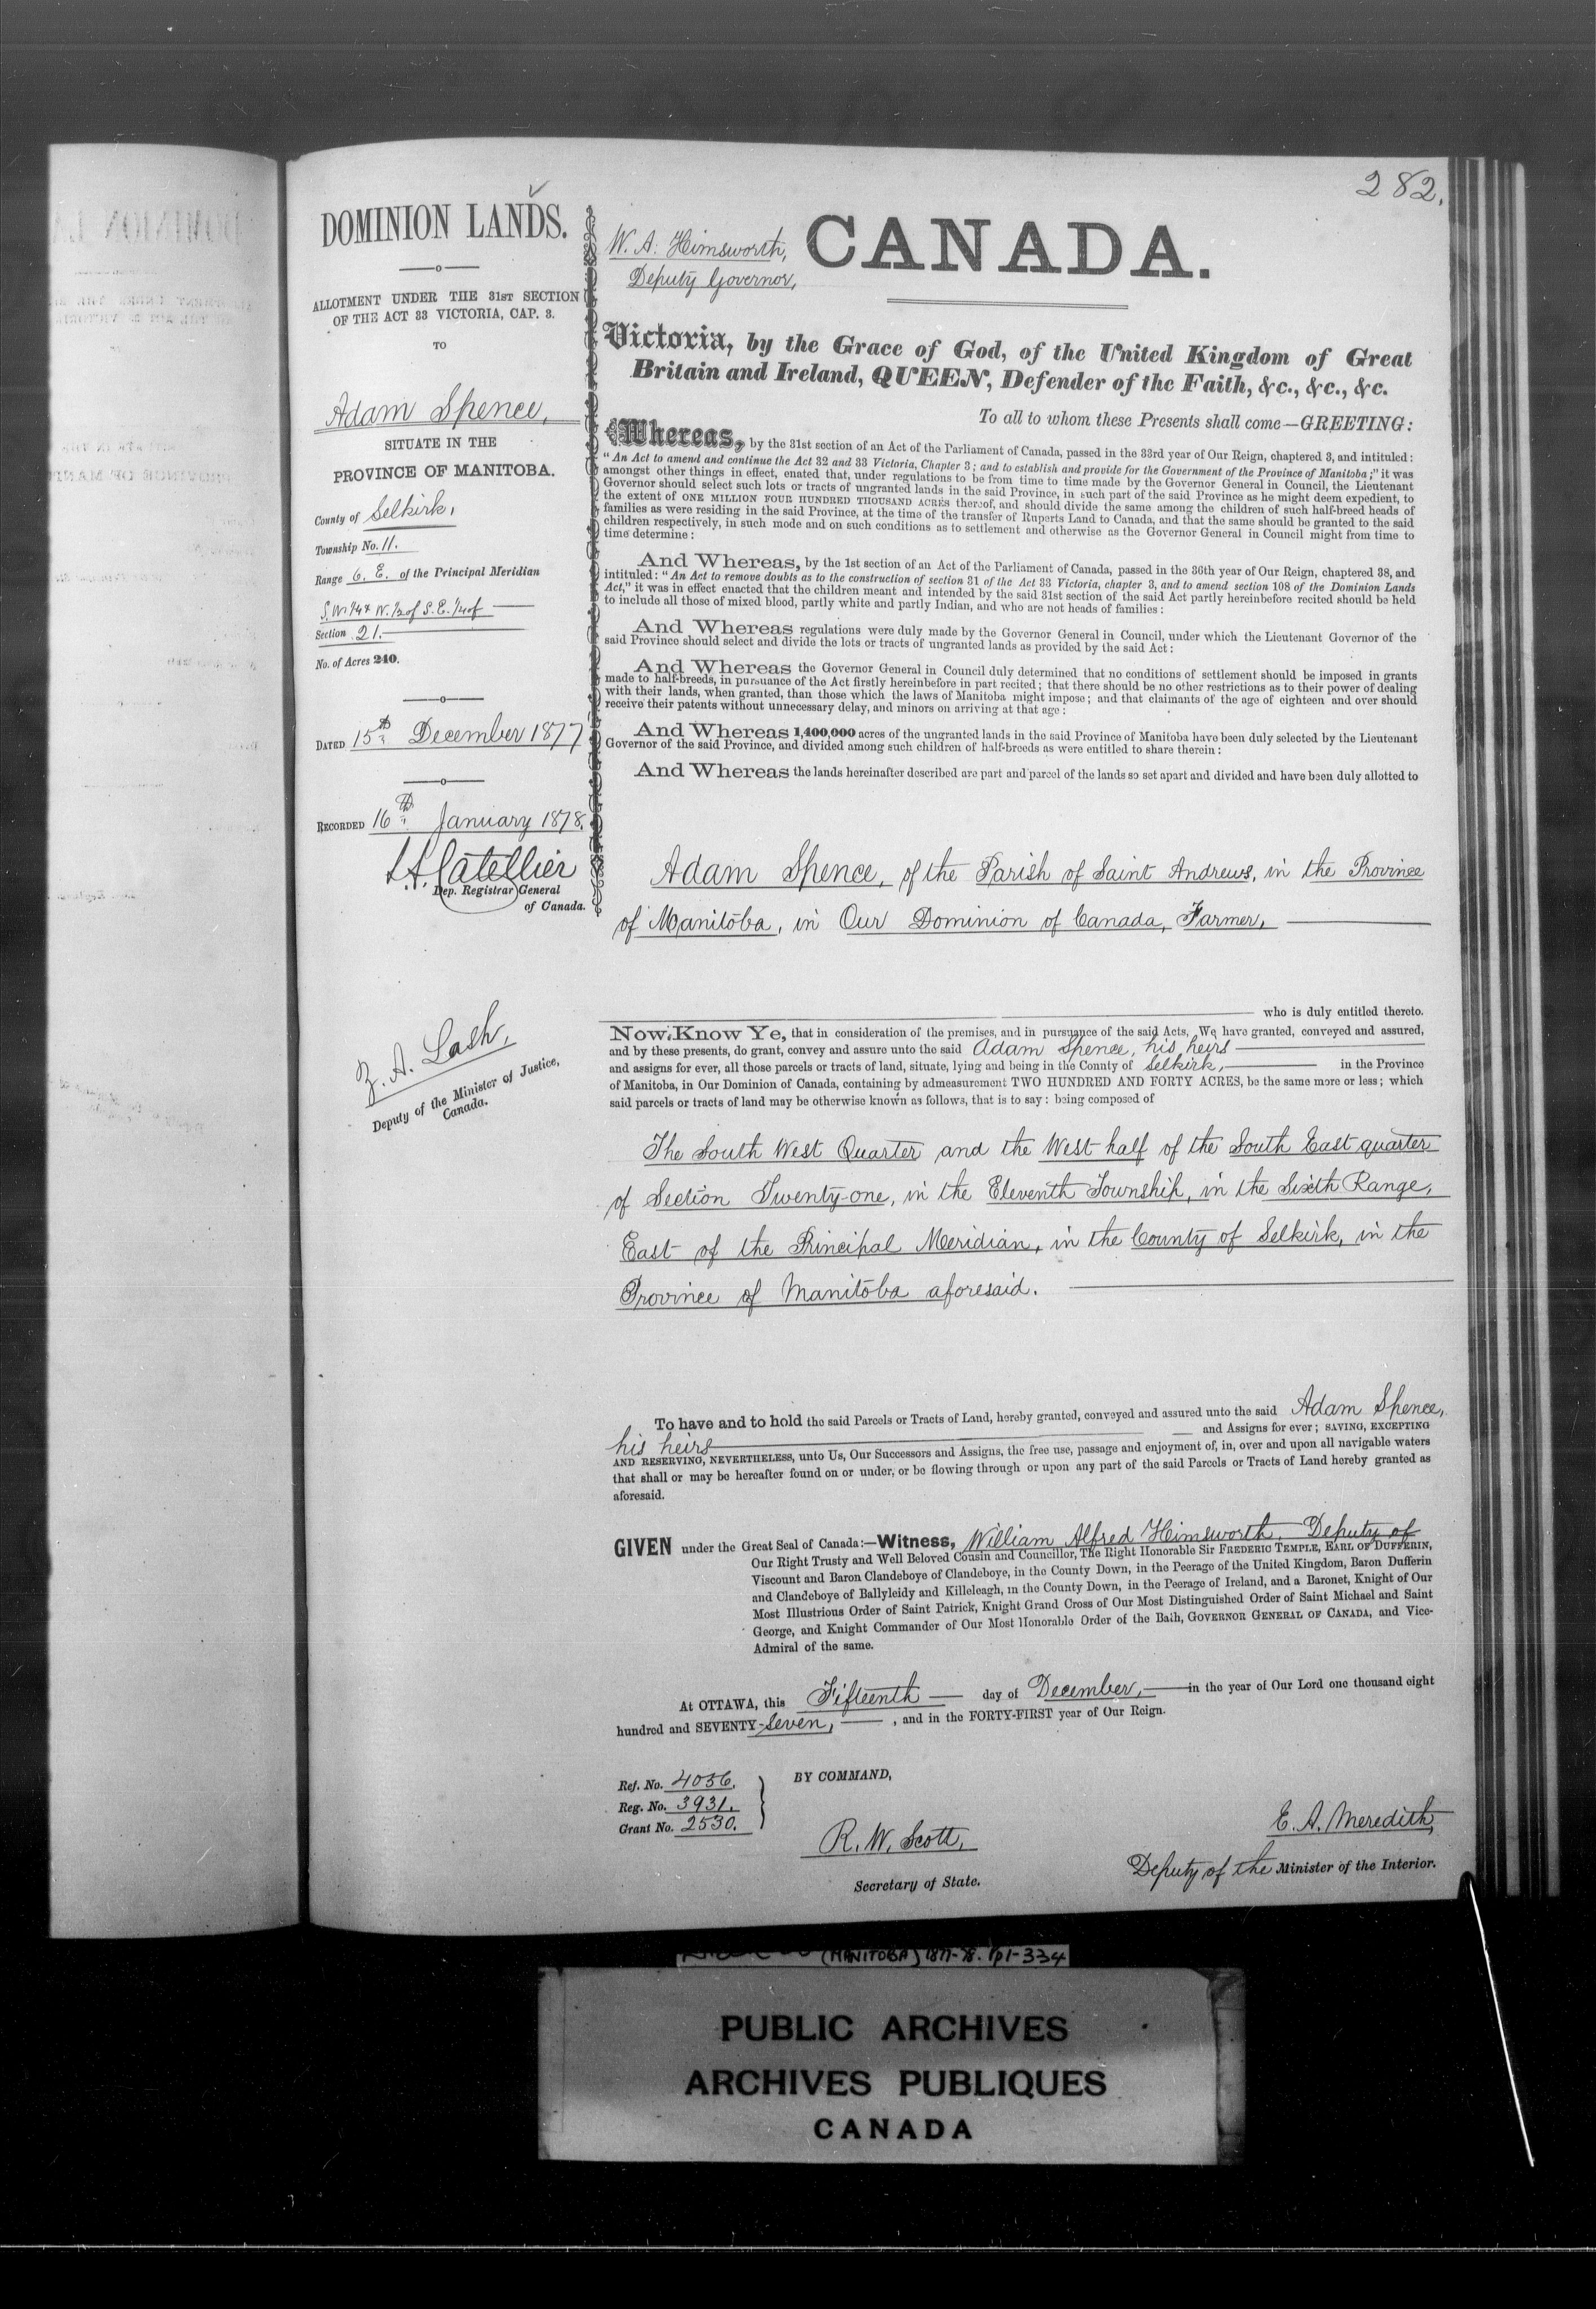 282.
DOMINION LANDS.
ALLOTMENT UNDER THE 31ST SECTION
OF THE ACT 33 VICTORIA, CAP. 3.
TO
Adam Spence,
SITUATE IN THE
PROVINCE OF MANITOBA.
County of Selkirk,
Township No. 11.
Range 6. E. of the Principal Meridian
S.W. 1/4 & W. 1/2 of S.E. 1/4 of
Section 21.
No. of Acres 240.
DATED 15th December 1877
RECORDED 16th January 1878.
L.A. Catellier
Dep. Registrar General
of Canada.
Z. A. Lash,
Deputy of the Minister of Justice,
Canada.
W. A. Himsworth,
Deputy Governor,
CANADA.
Victoria, by the Grace of God, of the United Kingdom of Great
Britain and Ireland, QUEEN, Defender of the Faith, &c., &c., &c.
To all to whom these Presents shall come—GREETING:
Whereas, by the 31st section of an Act of the Parliament of Canada, passed in the 33rd year of Our Reign, chaptered 3, and intituled:
"An Act to amend and continue the Act 32 and 33 Victoria, Chapter 3; and to establish and provide for the Government of the Province of Manitoba;" it was
amongst other things in effect, enated that, under regulations to be from time to time made by the Governor General in Council, the Lieutenant
Governor should select such lots or tracts of ungranted lands in the said Province, in such part of the said Province as he might deem expedient, to
the extent of ONE MILLION FOUR HUNDRED THOUSAND ACRES thereof, and should divide the same among the children of such half-breed heads of
families as were residing in the said Province, at the time of the transfer of Ruperts Land to Canada, and that the same should be granted to the said
children respectively, in such mode and on such conditions as to settlement and otherwise as the Governor General in Council might from time to
time determine:
And Whereas, by the 1st section of an Act of the Parliament of Canada, passed in the 36th year of Our Reign, chaptered 38, and
intituled: "An Act to remove doubts as to the construction of section 31 of the Act 33 Victoria, chapter 3, and to amend section 108 of the Dominion Lands
Act," it was in effect enacted that the children meant and intended by the said 31st section of the said Act partly hereinbefore recited should be held
to include all those of mixed blood, partly white and partly Indian, and who are not heads of families:
And Whereas regulations were duly made by the Governor General in Council, under which the Lieutenant Governor of the
said Province should select and divide the lots or tracts of ungranted lands as provided by the said Act:
And Whereas the Governor General in Council duly determined that no conditions of settlement should be imposed in grants
made to half-breeds, in pursuance of the Act firstly hereinbefore in part recited; that there should be no other restrictions as to their power of dealing
with their lands, when granted, than those which the laws of Manitoba might impose; and that claimants of the age of eighteen and over should
receive their patents without unnecessary delay, and minors on arriving at that age:
And Whereas 1,400,000 acres of the ungranted lands in the said Province of Manitoba have been duly selected by the Lieutenant
Governor of the said Province, and divided among such children of half-breeds as were entitled to share therein:
And Whereas the lands hereinafter described are part and parcel of the lands so set apart and divided and have been duly allotted to
Adam Spence, of the Parish of Saint Andrews, in the Province
of Manitoba, in Our Dominion of Canada, Farmer,
who is duly entitled thereto.
Now Know Ye, that in consideration of the premises, and in pursuance of the said Acts, We have granted, conveyed and assured,
and by these presents, do grant, convey and assure unto the said Adam Spence, his heirs
and assigns for ever, all those parcels or tracts of land, situate, lying and being in the County of Selkirk, in the Province
of Manitoba, in Our Dominion of Canada, containing by admeasurement TWO HUNDRED AND FORTY ACRES, be the same more or less; which
said parcels or tracts of land may be otherwise known as follows, that is to say: being composed of
The South West Quarter and the West half of the South East quarter
of Section Twenty-one, in the Eleventh Township, in the Sixth Range,
East of the Principal Meridian, in the County of Selkirk, in the
Province of Manitoba aforesaid.
To have and to hold the said Parcels or Tracts of Land, hereby granted, conveyed and assured unto the said Adam Spence,
his heirs and Assigns for ever; SAVING, EXCEPTING
AND RESERVING, NEVERTHELESS, unto Us, Our Successors and Assigns, the free use, passage and enjoyment of, in, over and upon all navigable waters
that shall or may be hereafter found on or under, or be flowing through or upon any part of the said Parcels or Tracts of Land hereby granted as
aforesaid.
GIVEN under the Great Seal of Canada:—Witness, William Alfred Himsworth, Deputy of
Our Right Trusty and Well Beloved Cousin and Councillor, The Right Honorable Sir FREDERIC TEMPLE, EARL OF DUFFERIN,
Viscount and Baron Clandeboye of Clandeboye, in the County Down, in the Peerage of the United Kingdom, Baron Dufferin
and Clandeboye of Ballyleidy and Killeleagh, in the County Down, in the Peerage of Ireland, and a Baronet, Knight of Our
Most Illustrious Order of Saint Patrick, Knight Grand Cross of Our Most Distinguished Order of Saint Michael and Saint
George, and Knight Commander of Our Most Honorable Order of the Bath, GOVERNOR GENERAL OF CANADA, and Vice-
Admiral of the same.
At OTTAWA, this Fifteenth day of December, in the year of Our Lord one thousand eight
hundred and SEVENTY-Seven, , and in the FORTY-FIRST year of Our Reign.
Ref. No. 4056.
Reg. No. 3931.
Grant No. 2530.
BY COMMAND,
R. W. Scott,
Secretary of State.
E. A. Meredith,
Deputy of the Minister of the Interior.
(MANITOBA) 1877-78. pp1-334
PUBLIC ARCHIVES
ARCHIVES PUBLIQUES
CANADA